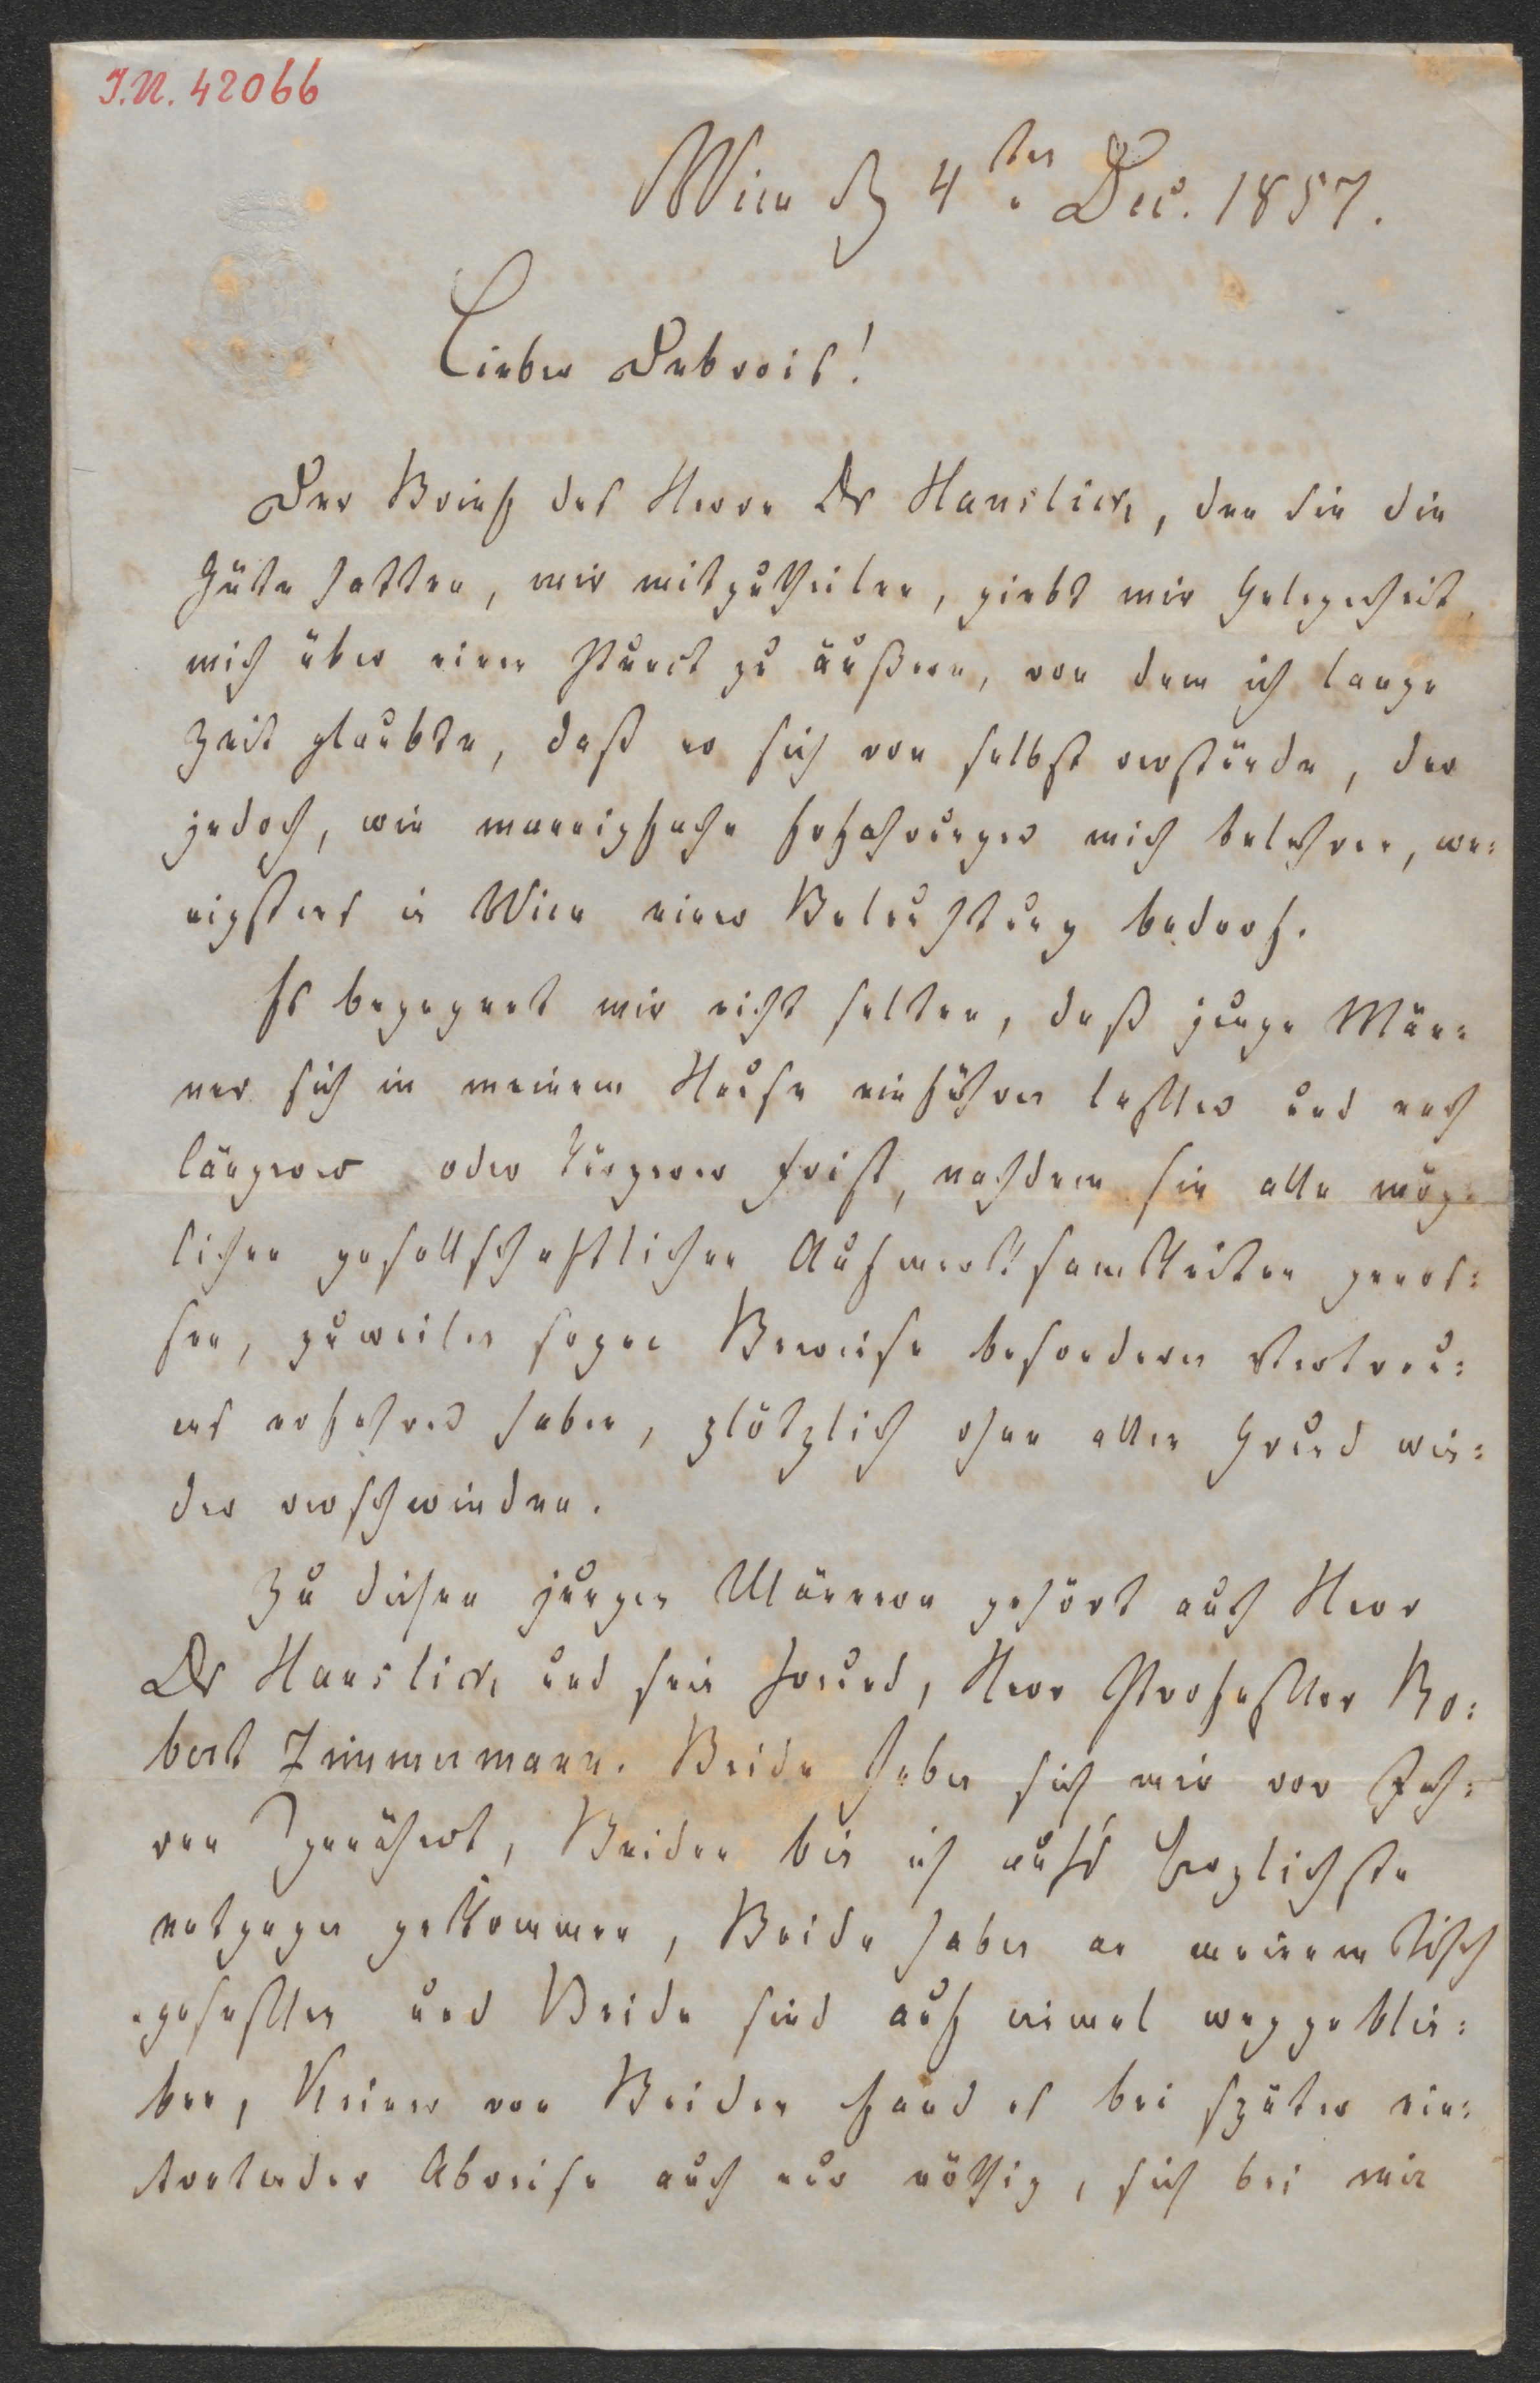 I.N. 42066
Wien d 4ten Dec. 1857.
Lieber Debrois!
Der Brief des Herrn Dr Hanslick, den Sie die
Güte hatten, mir mitzutheilen, giebt mir Gelegenheit,
mich über einen Punct zu äußern, von dem ich lange
Zeit glaubte, daß er sich von selbst verstünde, der
jedoch, wie mannigfache Erfahrungen mich belehren, we=
nigstens in Wien einer Beleuchtung bedarf.
Es begegnet mir nicht selten, daß junge Män=
ner sich in meinem Hause einführen lassen und nach
längerer oder kürzerer Frist, nachdem sie alle mög=
lichen gesellschaftlichen Aufmerksamkeiten genos=
sen, zuweilen sogar Beweise besondern Vertrau=
ens erfahren haben, plötzlich ohne allen Grund wie=
der verschwinden.
Zu diesen jungen Männern gehört auch Herr
Dr Hanslick und sein Freund, Herr Professor Ro=
bert Zimmermann. Beide haben sich mir vor Jah=
ren genähert, Beiden bin ich aufs herzlichste
entgegen gekommen, Beide haben an meinem Tisch
gesessen und Beide sind auf einmal weggeblie=
ben, Keiner von Beiden fand es bei später ein=
tretender Abreise auch nur nöthig, sich bei mir